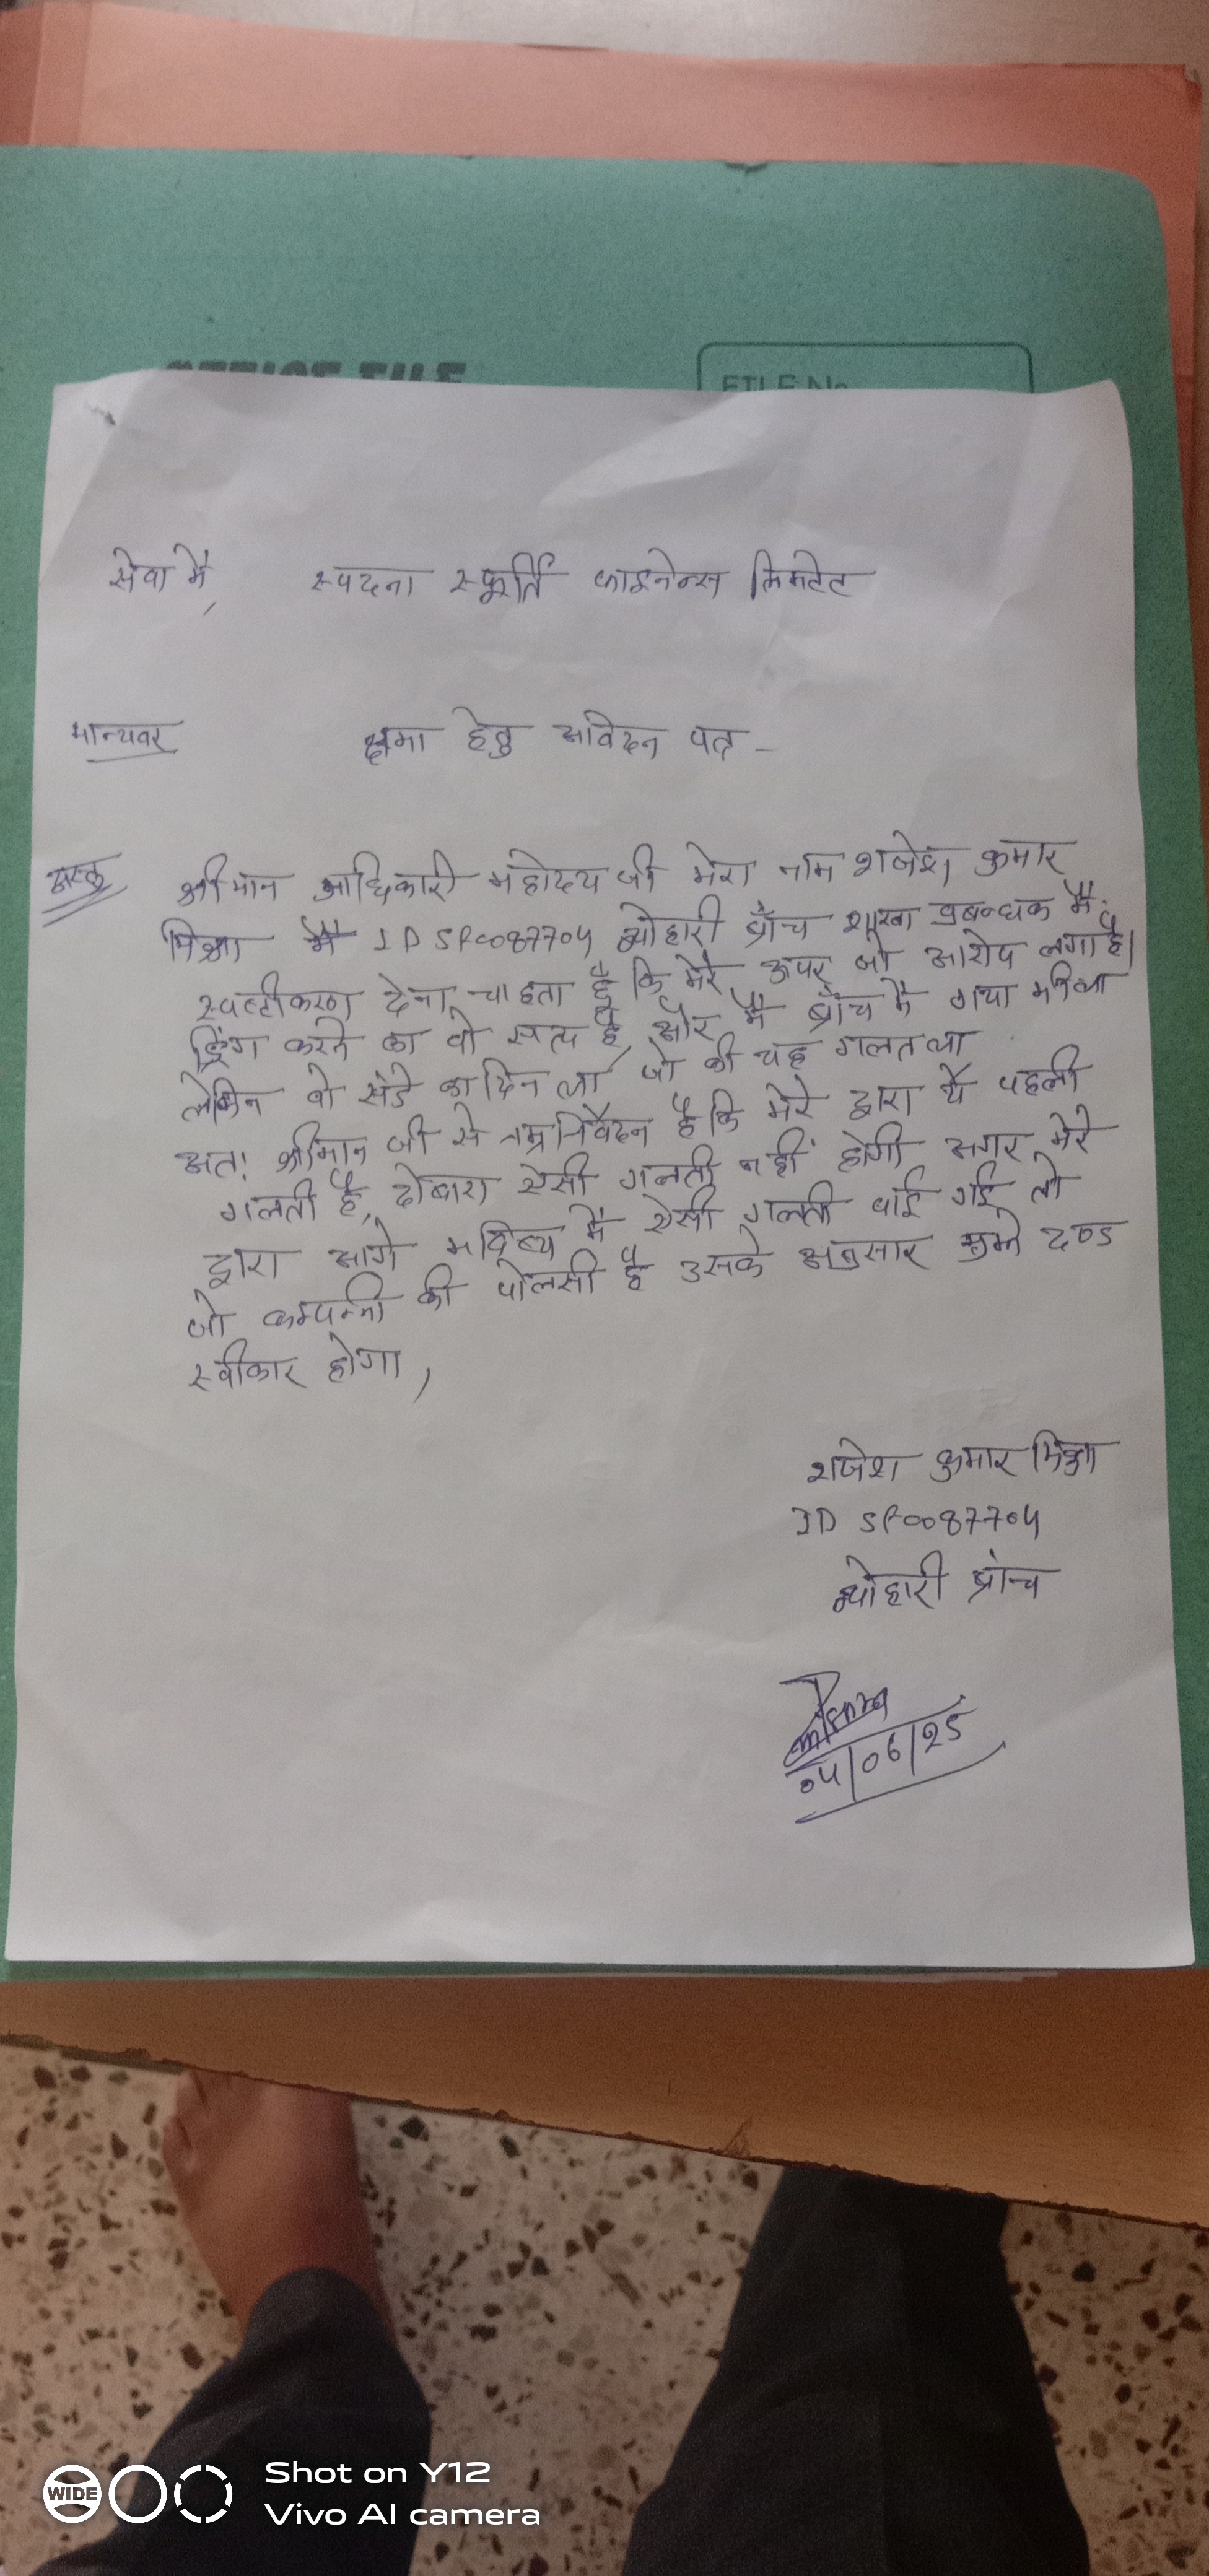 OFFICE FILE
FILE No.
सेवा में, स्पदना स्फूर्ति फाइनेन्स लिमटेट
मान्यवर क्षमा हेतु आवेदन पत्र -
श्रीमान अधिकारी महोदय जी मेरा नाम राजेश कुमार
मिश्रा ID SF0087704 ब्योहारी ब्रॉच शाखा प्रबन्धक मैं
स्पष्टीकरण देना चाहता हूँ कि मेरे ऊपर जो आरोप लगा है।
ड्रिंग करने का वो सत्य है, और मैं ब्रॉच मै गया भी था
लेकिन वो संडे का दिन था, जो की यह गलत था
अतः श्रीमान जी से नम्र निवेदन है कि मेरे द्वारा ये पहली
गलती है, दोबारा ऐसी गलती नहीं होगी अगर मेरे
द्वारा आगे भविष्य मे ऐसी गलती पाई गई तो
जो कम्पन्नी की पोलसी है उसके अनुसार मुझे दण्ड
स्वीकार होगा,
राजेश कुमार मिश्रा
ID SF0087704
ब्योहारी ब्रांच
04/06/25
WIDE
Shot on Y12
Vivo AI camera